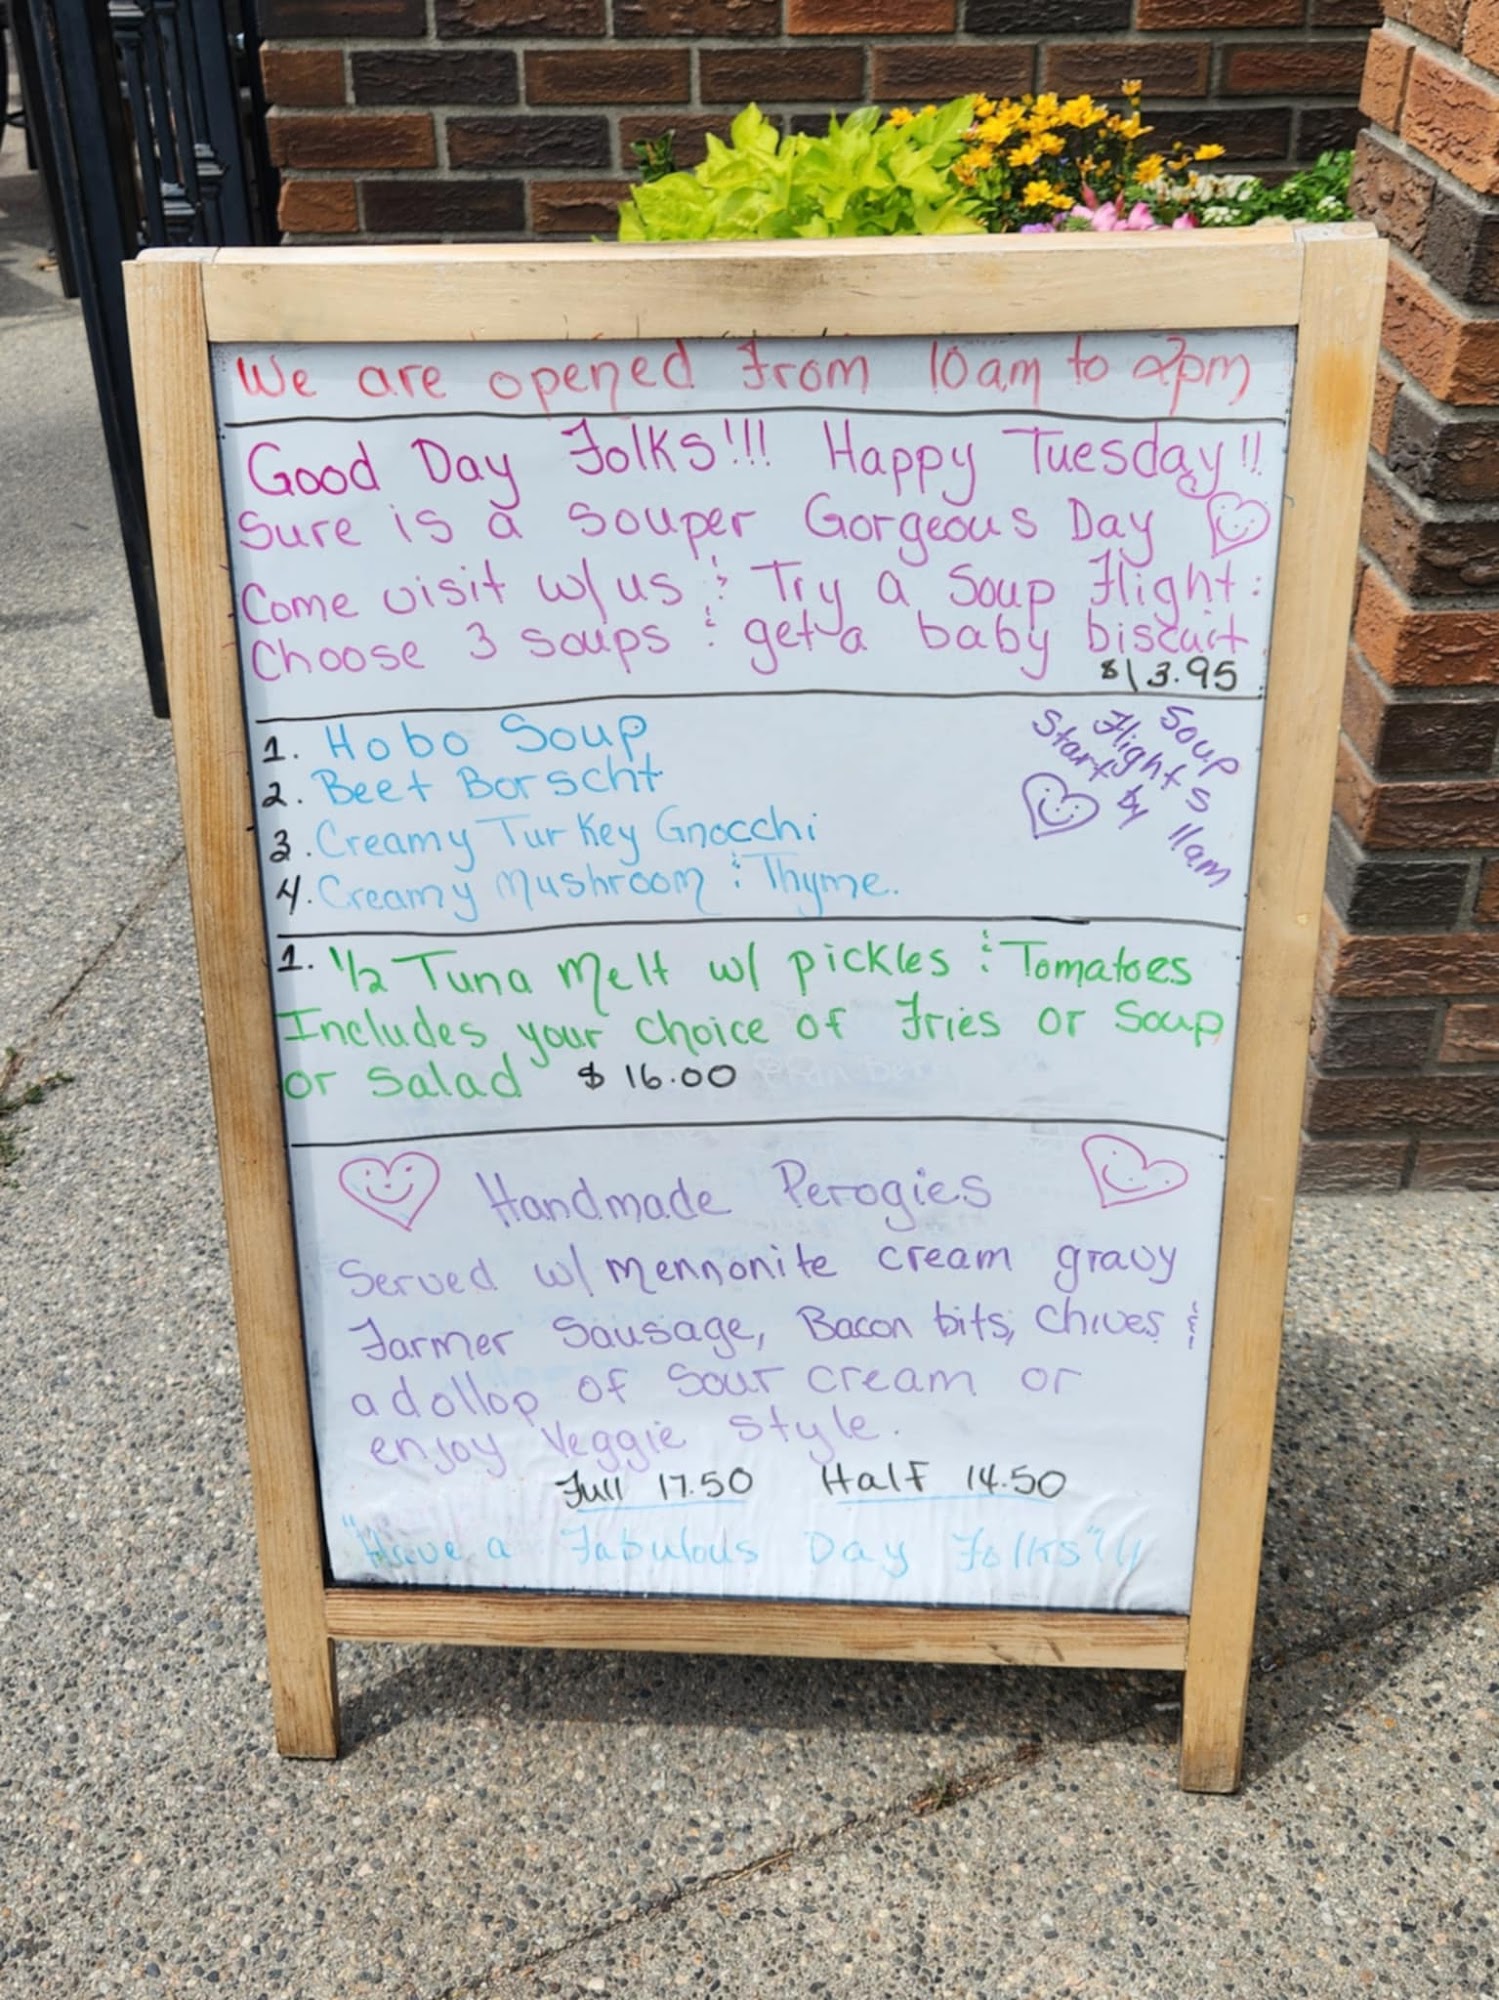 We are opened from 10am to 2pm
Good Day Folks!!! Happy Tuesday!!
Sure is a Souper Gorgeous Day
Come visit w/ us & Try a Soup Flight:
Choose 3 Soups & get a baby biscuit
$13.95
1. Hobo Soup
2. Beet Borscht
3. Creamy Turkey Gnocchi
4. Creamy Mushroom & Thyme.
Soup
Flights
Start by 11am
1. 1/2 Tuna Melt w/ pickles & Tomatoes
Includes your choice of Fries or Soup
or Salad $16.00
Handmade Perogies
Served w/ mennonite cream gravy
Farmer Sausage, Bacon bits, Chives &
a dollop of Sour cream or
enjoy Veggie style.
Full 17.50 Half 14.50
"Have a Fabulous Day Folks"!!!